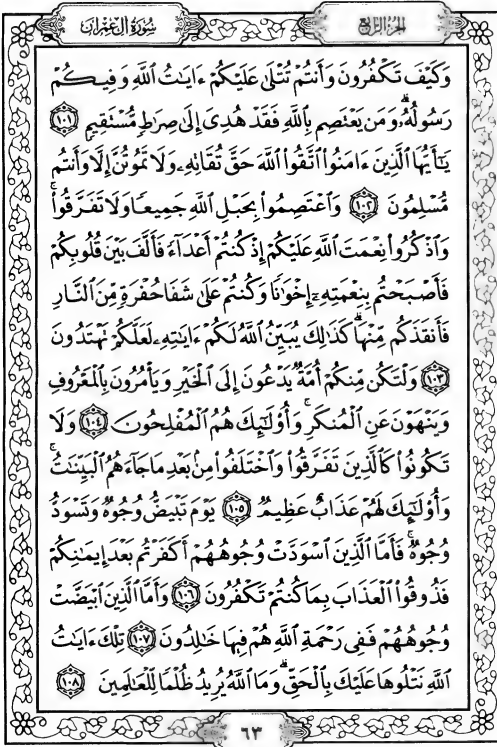 سُورَةُ آلِ عِمْرَانَ
الجُزْءُ الرَّابِعُ
وَكَيْفَ تَكْفُرُونَ وَأَنتُمْ تُتْلَىٰ عَلَيْكُمْ ءَايَٰتُ ٱللَّهِ وَفِيكُمْ
رَسُولُهُۥۗ وَمَن يَعْتَصِم بِٱللَّهِ فَقَدْ هُدِىَ إِلَىٰ صِرَٰطٍ مُّسْتَقِيمٍ ١٠١
يَٰٓأَيُّهَا ٱلَّذِينَ ءَامَنُوا۟ ٱتَّقُوا۟ ٱللَّهَ حَقَّ تُقَاتِهِۦ وَلَا تَمُوتُنَّ إِلَّا وَأَنتُم
مُّسْلِمُونَ ١٠٢ وَٱعْتَصِمُوا۟ بِحَبْلِ ٱللَّهِ جَمِيعًا وَلَا تَفَرَّقُوا۟ۚ
وَٱذْكُرُوا۟ نِعْمَتَ ٱللَّهِ عَلَيْكُمْ إِذْ كُنتُمْ أَعْدَآءً فَأَلَّفَ بَيْنَ قُلُوبِكُمْ
فَأَصْبَحْتُم بِنِعْمَتِهِۦٓ إِخْوَٰنًا وَكُنتُمْ عَلَىٰ شَفَا حُفْرَةٍ مِّنَ ٱلنَّارِ
فَأَنقَذَكُم مِّنْهَاۗ كَذَٰلِكَ يُبَيِّنُ ٱللَّهُ لَكُمْ ءَايَٰتِهِۦ لَعَلَّكُمْ تَهْتَدُونَ
١٠٣ وَلْتَكُن مِّنكُمْ أُمَّةٌ يَدْعُونَ إِلَى ٱلْخَيْرِ وَيَأْمُرُونَ بِٱلْمَعْرُوفِ
وَيَنْهَوْنَ عَنِ ٱلْمُنكَرِۚ وَأُو۟لَٰٓئِكَ هُمُ ٱلْمُفْلِحُونَ ١٠٤ وَلَا
تَكُونُوا۟ كَٱلَّذِينَ تَفَرَّقُوا۟ وَٱخْتَلَفُوا۟ مِنۢ بَعْدِ مَا جَآءَهُمُ ٱلْبَيِّنَٰتُۚ
وَأُو۟لَٰٓئِكَ لَهُمْ عَذَابٌ عَظِيمٌ ١٠٥ يَوْمَ تَبْيَضُّ وُجُوهٌ وَتَسْوَدُّ
وُجُوهٌۚ فَأَمَّا ٱلَّذِينَ ٱسْوَدَّتْ وُجُوهُهُمْ أَكَفَرْتُم بَعْدَ إِيمَٰنِكُمْ
فَذُوقُوا۟ ٱلْعَذَابَ بِمَا كُنتُمْ تَكْفُرُونَ ١٠٦ وَأَمَّا ٱلَّذِينَ ٱبْيَضَّتْ
وُجُوهُهُمْ فَفِى رَحْمَةِ ٱللَّهِ هُمْ فِيهَا خَٰلِدُونَ ١٠٧ تِلْكَ ءَايَٰتُ
ٱللَّهِ نَتْلُوهَا عَلَيْكَ بِٱلْحَقِّۗ وَمَا ٱللَّهُ يُرِيدُ ظُلْمًا لِّلْعَٰلَمِينَ ١٠٨
٦٣